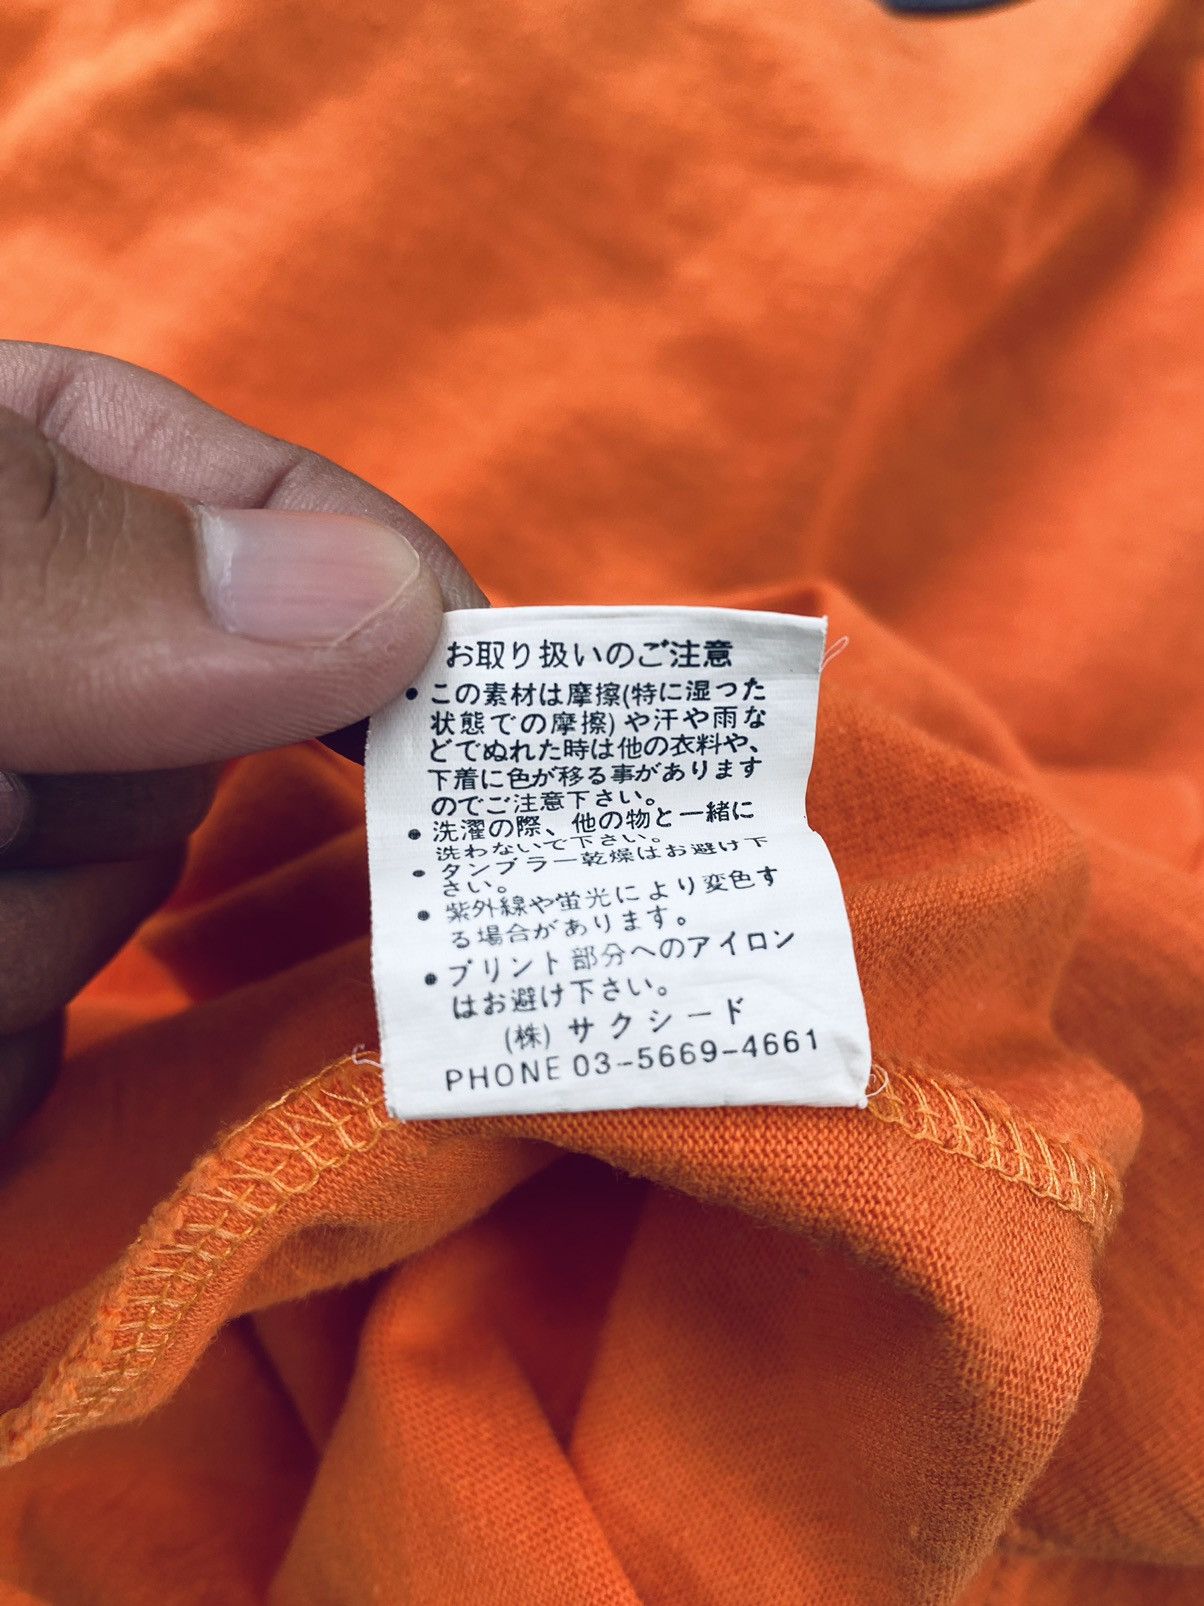 お取り扱いのご注意
• この素材は摩擦(特に湿った
状態での摩擦)や汗や雨な
どでぬれた時は他の衣料や、
下着に色が移る事があります
のでご注意下さい。
• 洗濯の際、他の物と一緒に
洗わないで下さい。
• タンブラー乾燥はお避け下
さい。
• 紫外線や蛍光により変色す
る場合があります。
• プリント部分へのアイロン
はお避け下さい。
(株) サクシード
PHONE 03-5669-4661